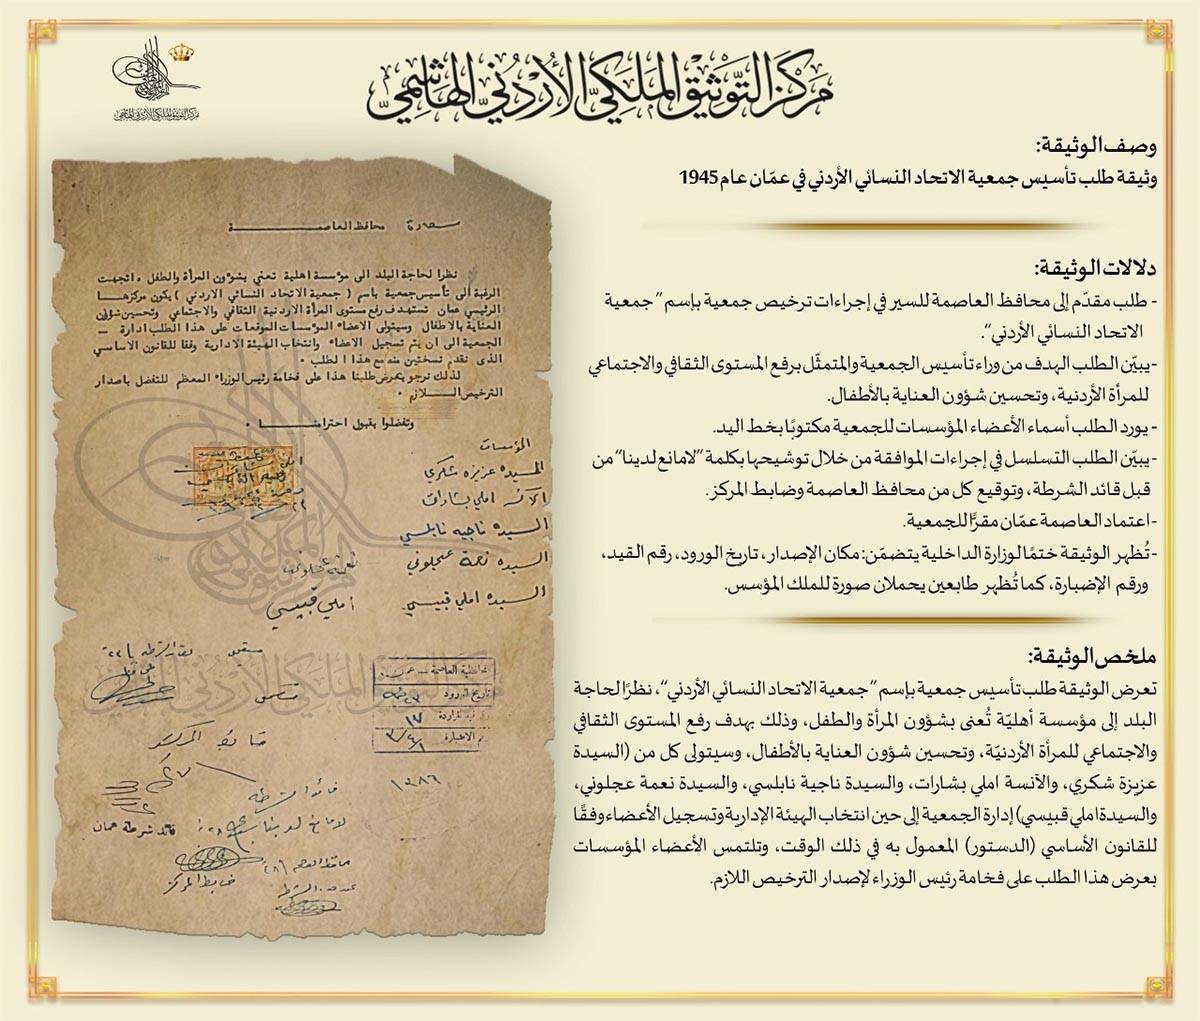 مركز التوثيق الملكي الأردني الهاشمي
مركز التوثيق الملكي الأردني الهاشمي
وصف الوثيقة:
وثيقة طلب تأسيس جمعية الاتحاد النسائي الأردني في عمّان عام 1945
دلالات الوثيقة:
- طلب مقدّم إلى محافظ العاصمة للسير في إجراءات ترخيص جمعية بإسم "جمعية
الاتحاد النسائي الأردني".
-يبيّن الطلب الهدف من وراء تأسيس الجمعية والمتمثّل برفع المستوى الثقافي والاجتماعي
للمرأة الأردنية، وتحسين شؤون العناية بالأطفال.
- يورد الطلب أسماء الأعضاء المؤسسات للجمعية مكتوبًا بخط اليد.
-يبيّن الطلب التسلسل في إجراءات الموافقة من خلال توشيحها بكلمة "لامانع لدينا" من
قبل قائد الشرطة، وتوقيع كل من محافظ العاصمة وضابط المركز.
-اعتماد العاصمة عمّان مقرًّا للجمعية.
-تُظهر الوثيقة ختمًا لوزارة الداخلية يتضمّن: مكان الإصدار، تاريخ الورود، رقم القيد،
ورقم الإضبارة، كما تُظهر طابعين يحملان صورة للملك المؤسس.
ملخص الوثيقة:
تعرض الوثيقة طلب تأسيس جمعية بإسم "جمعية الاتحاد النسائي الأردني"، نظرًا لحاجة
البلد إلى مؤسسة أهليّة تُعنى بشؤون المرأة والطفل، وذلك بهدف رفع المستوى الثقافي
والاجتماعي للمرأة الأردنيّة، وتحسين شؤون العناية بالأطفال، وسيتولى كل من (السيدة
عزيزة شكري، والآنسة املي بشارات، والسيدة ناجية نابلسي، والسيدة نعمة عجلوني،
والسيدة املي قبيسي) إدارة الجمعية إلى حين انتخاب الهيئة الإدارية وتسجيل الأعضاء وفقًا
للقانون الأساسي (الدستور) المعمول به في ذلك الوقت، وتلتمس الأعضاء المؤسسات
بعرض هذا الطلب على فخامة رئيس الوزراء لإصدار الترخيص اللازم.
محافظ العاصمــة
نظرا لحاجة البلد الى مؤسسة اهلية تعني بشؤون المرأة والطفل ، اتجهت
الرغبة الى تأسيس جمعية باسم ( جمعية الاتحاد النسائي الاردني ) يكون مركزهــا
الرئيسي عمان تستهدف رفع مستوى المرأة الاردنية الثقافي والاجتماعي وتحسين شؤون
العناية بالاطفال وسيتولى الاعضاء المؤسسات الموقعات على هذا الطلب ادارة
الجمعية الى ان يتم تسجيل الاعضاء وانتخاب الهيئة الادارية وفقا للقانون الاساسي
الذى نقدم نسختين منه مع هذا الطلب ٠
لذلك نرجو بعرض طلبنا هذا على فخامة رئيس الوزراء المعظم للتفضل باصدار
الترخيص الــلازم ٠
وتفضلوا بقبول احترامنــا ٠
المؤسسات
السيده عزيزه شكري
الآنسه املي بشارات
السيده ناجيه نابلسي
السيده نعمة عجلوني
السيده املي قبيسي
أملي قبيسي
محافظة العاصمة
تاريخ الورود
١٧
ضابط المركز
قائد الشرطة
لا مانع لدينا
قائد شرطة عمان
محافظ العاصمة
ضابط المركز